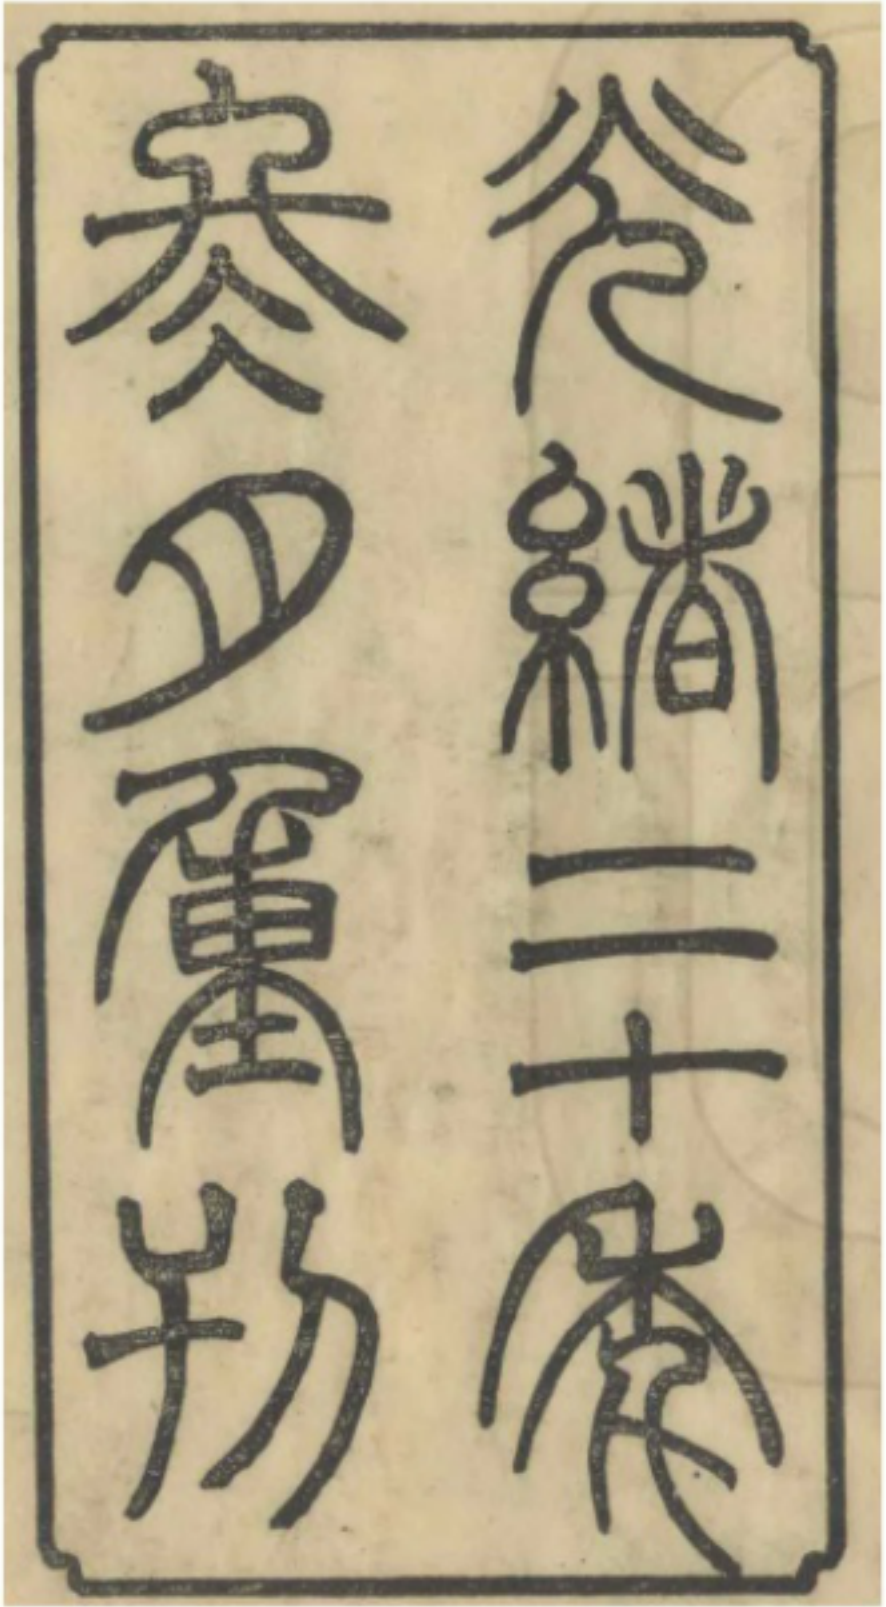 光緒二十年
冬月重刊